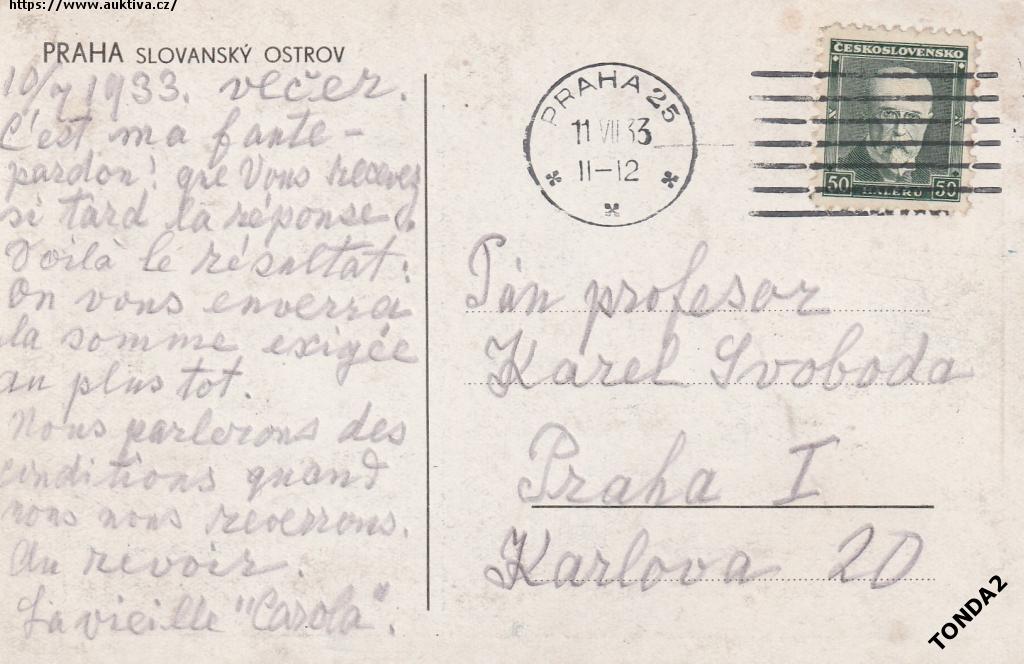 https://www.auktiva.cz/
PRAHA SLOVANSKÝ OSTROV
10/7 1933. večer.
C'est ma faute -
pardon! que Vous recevez
si tard la réponse.
Voilà le résultat:
On vous enverra
la somme exigée
au plus tot.
Nous parlerons des
conditions quand
nous nous reverrons.
Au revoir.
La vieille "Carola".
PRAHA 25
11 VII 33
11-12
ČESKOSLOVENSKO
50 HALÉŘŮ 50
Pán profesor
Karel Svoboda
Praha I
Karlova 20
TONDA2